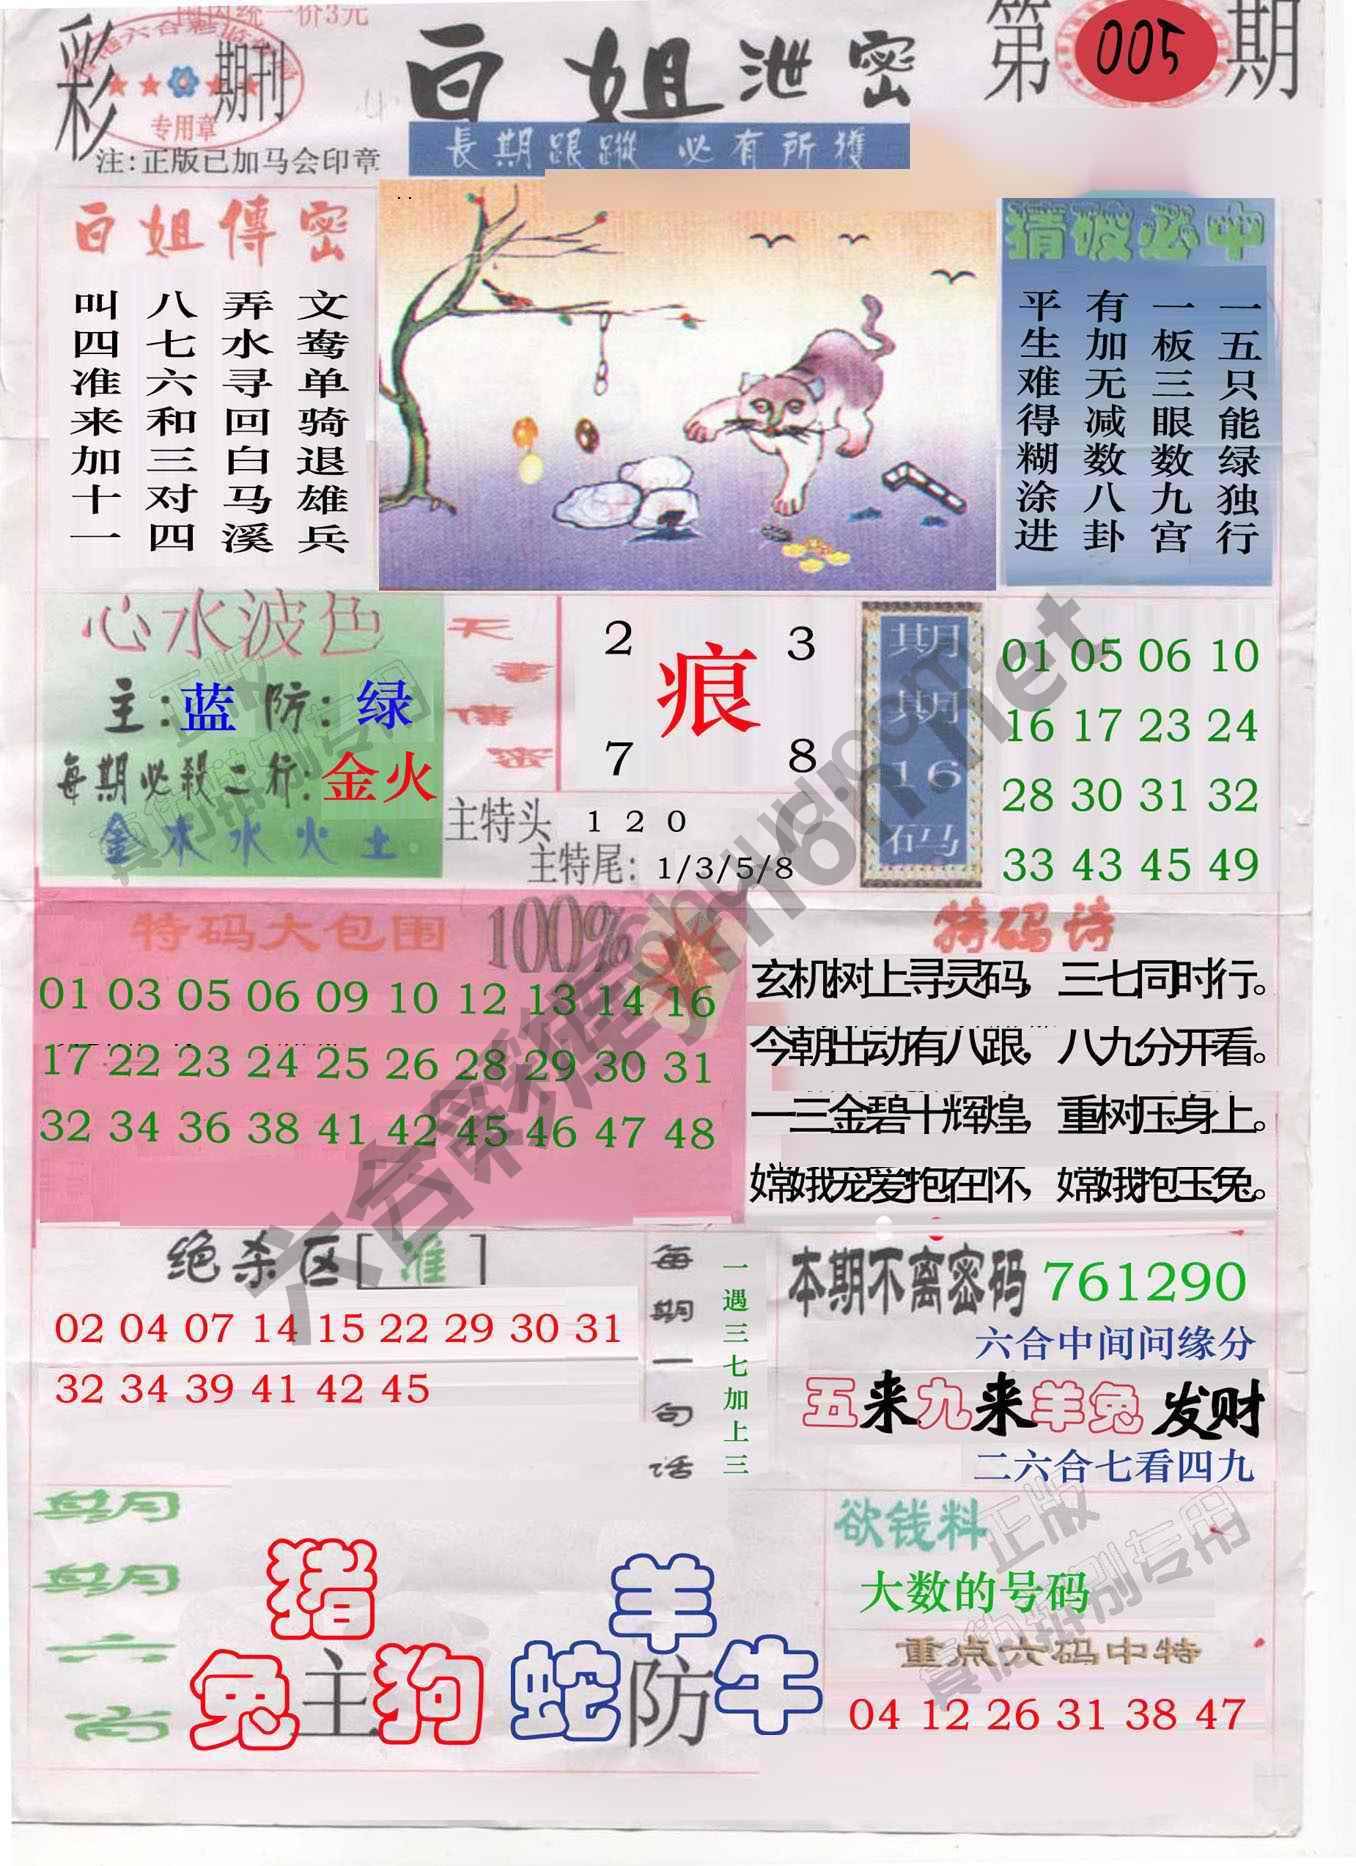 国内统一价3元
彩
期刊
专用章
注:正版已加马会印章
白姐泄密
長期跟蹤 必有所獲
第005期
白姐傳密
文鸯单骑退雄兵
弄水寻回白马溪
八七六和三对四
叫四准来加十一
猜破必中
一五只能绿独行
一板三眼数九宫
有加无减数八卦
平生难得糊涂进
心水波色
主:蓝 防:绿
每期必殺二行:金火
金木水火土
天書傳密
2 3
痕
7 8
主特头 1 2 0
主特尾: 1/3/5/8
期期16码
01 05 06 10
16 17 23 24
28 30 31 32
33 43 45 49
特码大包围 100%
01 03 05 06 09 10 12 13 14 16
17 22 23 24 25 26 28 29 30 31
32 34 36 38 41 42 45 46 47 48
特码诗
玄机树上寻灵码，三七同时行。
今朝出动有八跟，八九分开看。
一三金碧十辉煌，重树压身上。
嫦娥宠爱抱在怀，嫦娥抱玉兔。
绝杀区[准]
02 04 07 14 15 22 29 30 31
32 34 39 41 42 45
每期一句话
一遇三七加上三
本期不离密码 761290
六合中间问缘分
五来九来羊兔发财
二六合七看四九
期期六肖
猪
兔主狗
羊
蛇防牛
欲钱料
大数的号码
重点六码中特
04 12 26 31 38 47
正版
真伪辨别专用
正版
真伪辨别专用